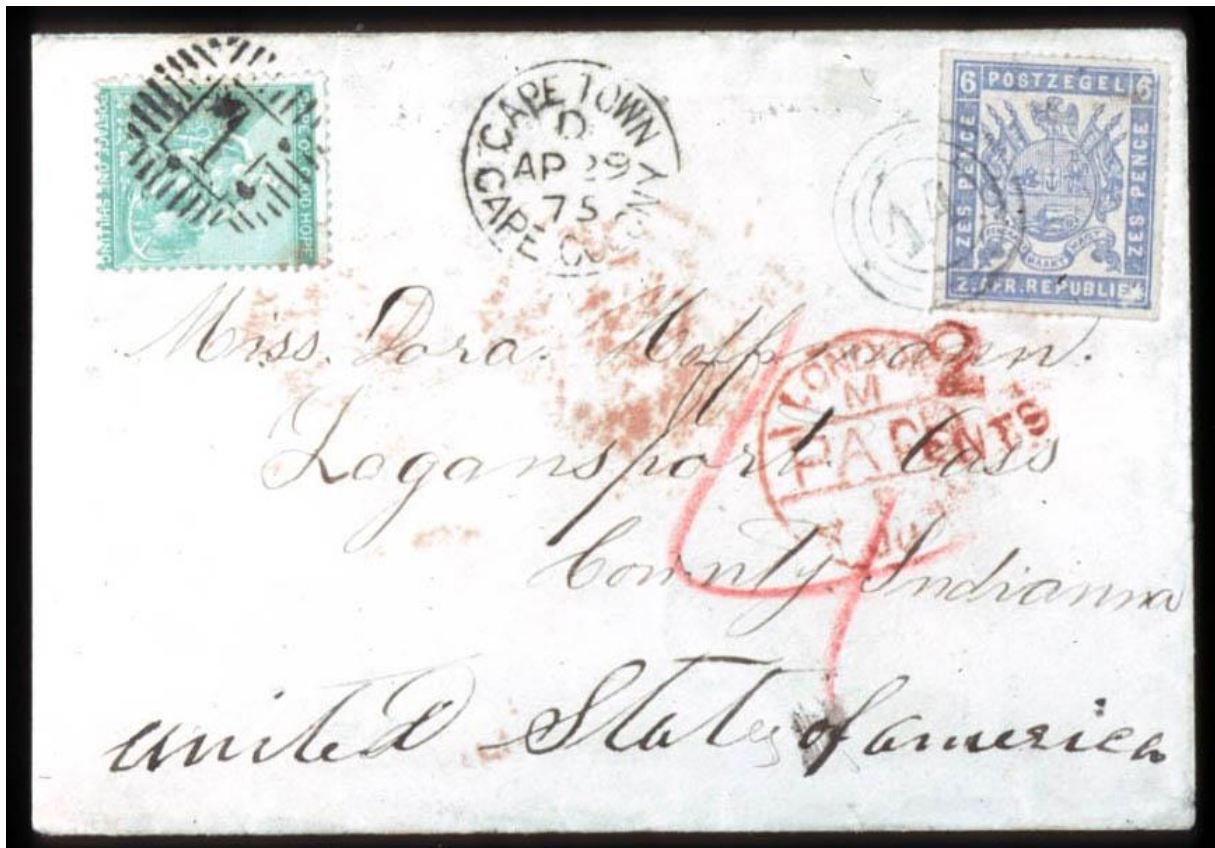 POSTAGE ONE SHILLING
CAPE OF GOOD HOPE
1
CAPE TOWN
D
AP 29
75
CAPE COLONY
6 POSTZEGEL 6
ZES PENCE
ZES PENCE
Z. AFR. REPUBLIEK
Miss. Dora. Hoffmann.
Logansport. Cass
County. Indianna
United States of america
LONDON
M
PAID
2
CENTS
4